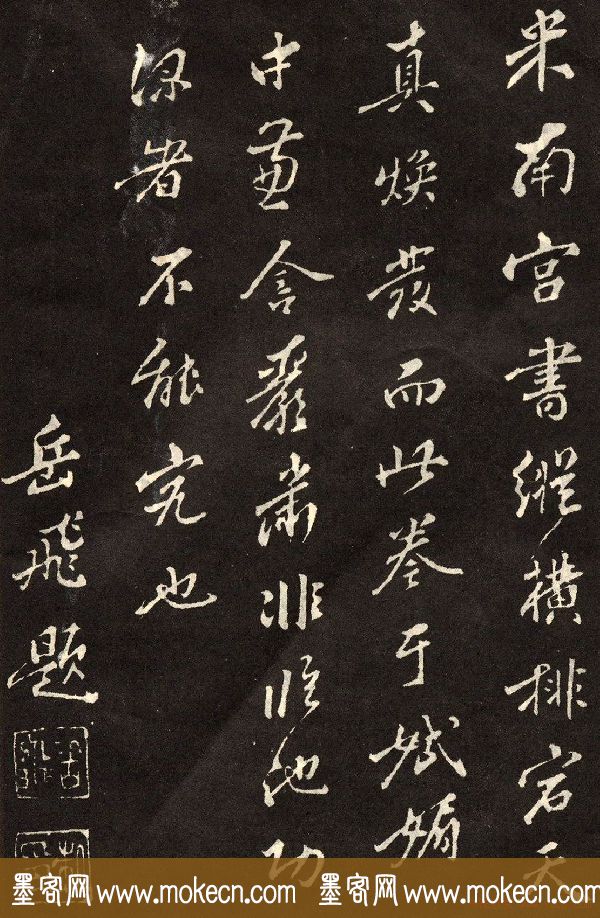 米南宮書縱橫排宕天
真煥發而此卷于娬媚
中兼含嚴肅非臨池功
深者不能究也
岳飛題
墨客网 www.mokecn.com 墨客网 www.mokecn.com